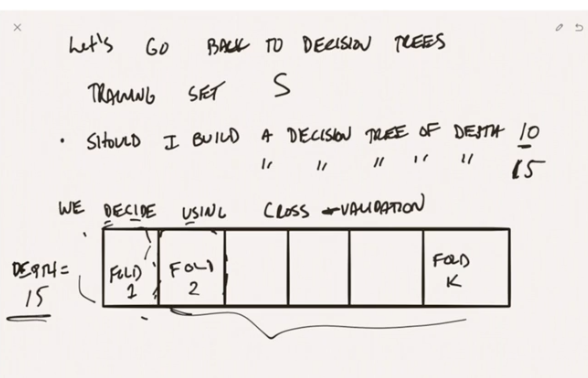 Let's GO BACK TO DECISION TREES
TRAINING SET S
• SHOULD I BUILD A DECISION TREE OF DEPTH 10
" " " " " 15
WE DECIDE USING CROSS-VALIDATION
DEPTH = 15
FOLD 1
FOLD 2
FOLD K